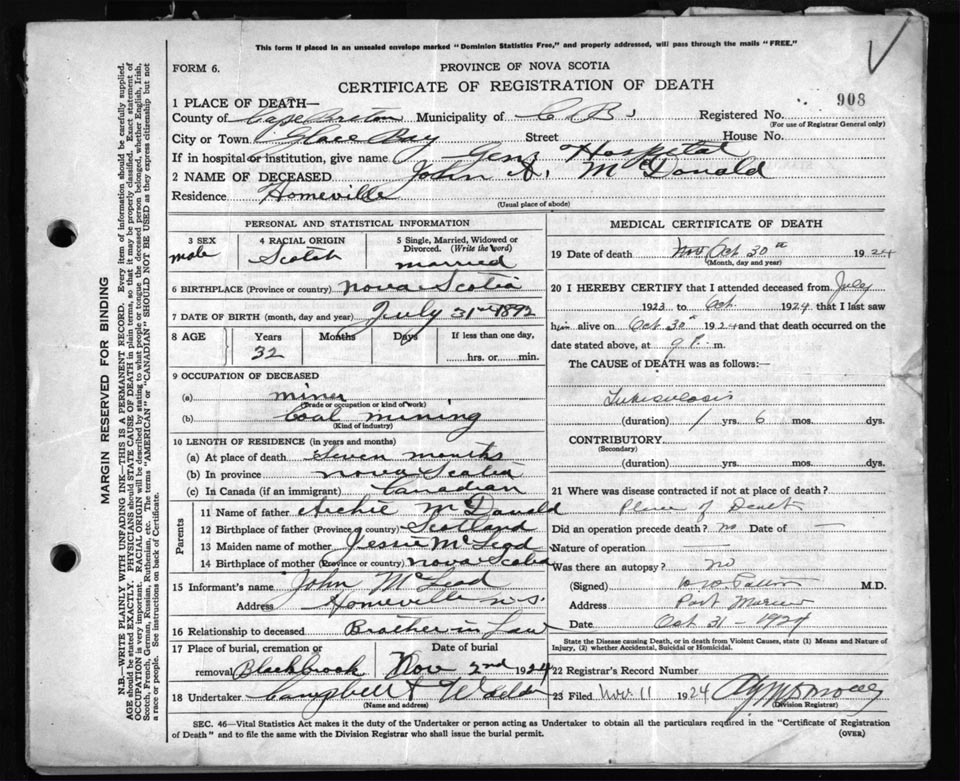 This form if placed in an unsealed envelope marked "Dominion Statistics Free," and properly addressed, will pass through the mails "FREE."
FORM 6.
PROVINCE OF NOVA SCOTIA
CERTIFICATE OF REGISTRATION OF DEATH
908
1 PLACE OF DEATH—
County of Cape Breton Municipality of C B Registered No.
(For use of Registrar General only)
City or Town Glace Bay Street House No.
If in hospital or institution, give name Genr Hospital
2 NAME OF DECEASED John A. McDonald
Residence Homeville
(Usual place of abode)
PERSONAL AND STATISTICAL INFORMATION
3 SEX 4 RACIAL ORIGIN 5 Single, Married, Widowed or Divorced. (Write the word)
male Scotch married
6 BIRTHPLACE (Province or country) Nova Scotia
7 DATE OF BIRTH (month, day and year) July 31st 1892
8 AGE Years Months Days If less than one day,
32 hrs. or min.
9 OCCUPATION OF DECEASED
(a) miner
(Trade or occupation or kind of work)
(b) Coal mining
(Kind of industry)
10 LENGTH OF RESIDENCE (in years and months)
(a) At place of death Seven months
(b) In province Nova Scotia
(c) In Canada (if an immigrant) Canadian
Parents
11 Name of father Archie McDonald
12 Birthplace of father (Province or country) Scotland
13 Maiden name of mother Jessie McLeod
14 Birthplace of mother (Province or country) Nova Scotia
15 Informant's name John McLeod
Address Homeville N.S.
16 Relationship to deceased Brother in Law
17 Place of burial, cremation or removal Date of burial
Blackbrook Nov 2nd 1924
18 Undertaker Campbell &
(Name and address)
MEDICAL CERTIFICATE OF DEATH
19 Date of death Nov Oct 30th 1924
(Month, day and year)
20 I HEREBY CERTIFY that I attended deceased from July
1923 to Oct. 1924 that I last saw
him alive on Oct 30th 1924 and that death occurred on
date stated above, at 9 P. m.
The CAUSE OF DEATH was as follows:
Tuberculosis
(duration) 1 yrs. 6 mos. dys.
CONTRIBUTORY
(Secondary)
(duration) yrs. mos. dys.
21 Where was disease contracted if not at place of death?
Place of Death
Did an operation precede death? no Date of —
Nature of operation —
Was there an autopsy? no
(Signed) M.D.
Address Port Morien
Date Oct 31 - 1924
State the Disease causing Death, or in death from Violent Causes, state (1) Means and Nature of Injury, (2) whether Accidental, Suicidal or Homicidal.
22 Registrar's Record Number
23 Filed Nov 11 1924
(Division Registrar)
SEC. 46—Vital Statistics Act makes it the duty of the Undertaker or person acting as Undertaker to obtain all the particulars required in the "Certificate of Registration
of Death" and to file the same with the Division Registrar who shall issue the burial permit.
(OVER)
MARGIN RESERVED FOR BINDING
N.B.—WRITE PLAINLY WITH UNFADING INK—THIS IS A PERMANENT RECORD. Every item of information should be carefully supplied.
AGE should be stated EXACTLY. PHYSICIANS should STATE CAUSE OF DEATH in plain terms, so that it may be properly classified. Exact statement of
OCCUPATION is very important. RACIAL ORIGIN will be described by stating to what people or tongue the deceased person belonged, whether English, Irish,
Scotch, French, German, Russian, Ruthenian, etc. The terms "AMERICAN" or "CANADIAN" SHOULD NOT BE USED as they express citizenship but not
a race or people. See instructions on back of Certificate.